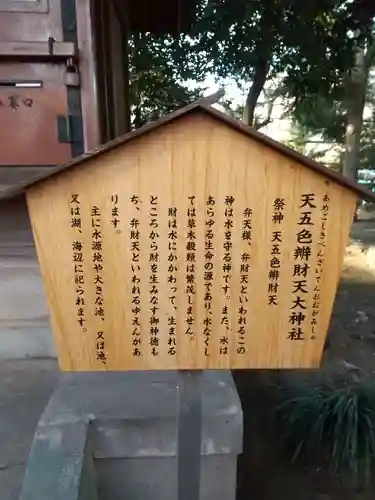 あめごしきべんざいてんおおがみしゃ
天五色辨財天大神社
祭神 天五色弁財天
弁天様、弁財天といわれるこの
神は水を守る神です。また、水は
あらゆる生命の源であり、水なくし
ては草木穀類は繁茂しません。
財は水にかかわって、生まれる
ところから財を生みなす御神徳も
ち、弁財天といわれるゆえんがあ
ります。
主に水源地や大きな池、又は池、
又は湖、海辺に祀られます。